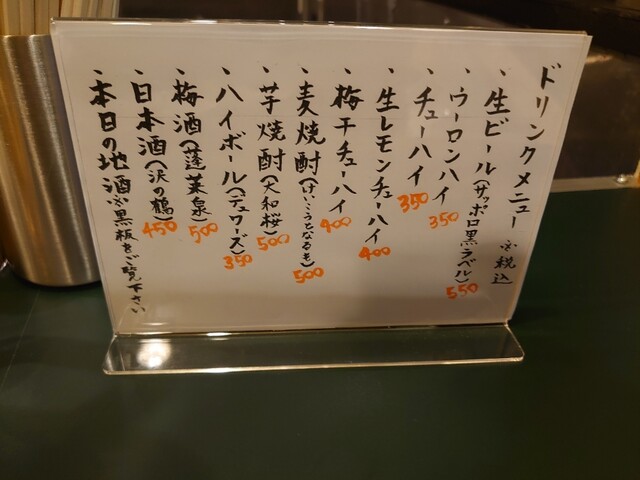 ドリンクメニュー ※税込
、生ビール(サッポロ黒ラベル) 550
、ウーロンハイ 350
、チューハイ 350
、生レモンチューハイ 400
、梅干チューハイ 400
、麦焼酎(けいこうとなるも) 500
、芋焼酎(大和桜) 500
、ハイボール(デュワーズ) 350
、梅酒(蓬莱泉) 500
、日本酒(沢の鶴) 450
、本日の地酒※黒板をご覧下さい